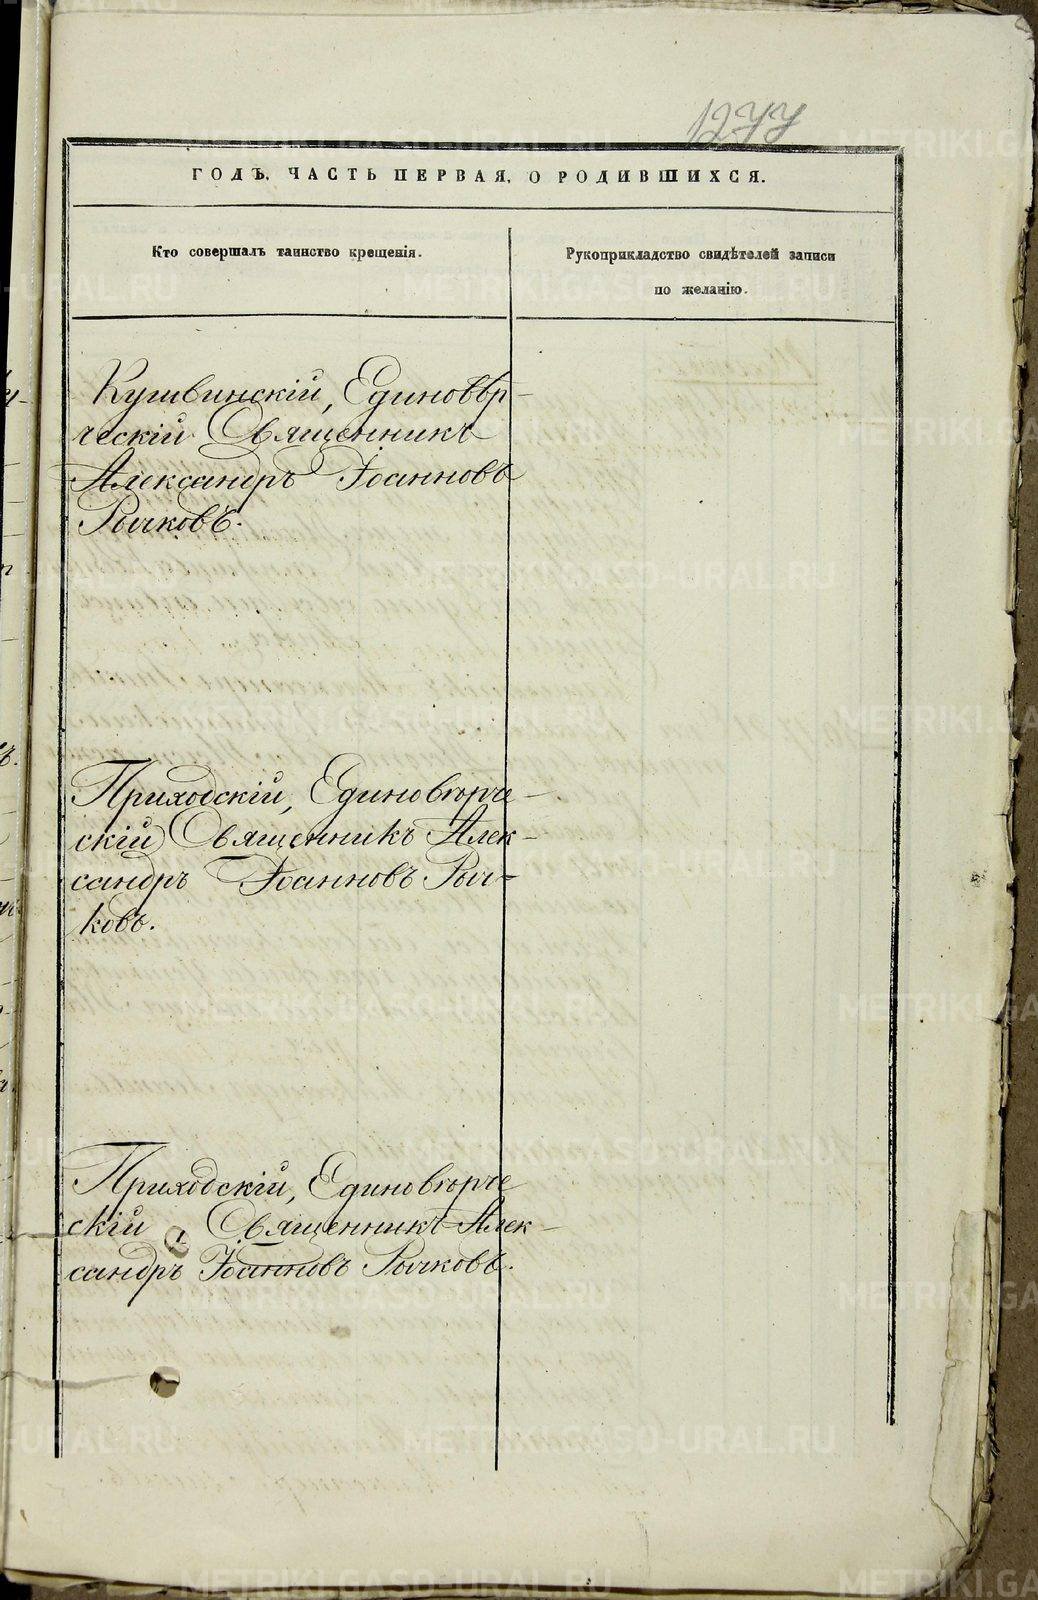 1277
ГОДЪ. ЧАСТЬ ПЕРВАЯ, О РОДИВШИХСЯ.
Кто совершалъ таинство крещенія.
Рукоприкладство свидѣтелей записи
по желанію.
Кушвинскій, Единовѣр-
ческій Священникъ
Александръ Іоанновъ
Рычковъ.
Приходскій, Единовѣрче-
скій Священникъ Алек-
сандръ Іоанновъ Рыч-
ковъ.
Приходскій, Единовѣрче
скій Священникъ Алек-
сандръ Іоанновъ Рычковъ.
METRIKI.GASO-URAL.RU